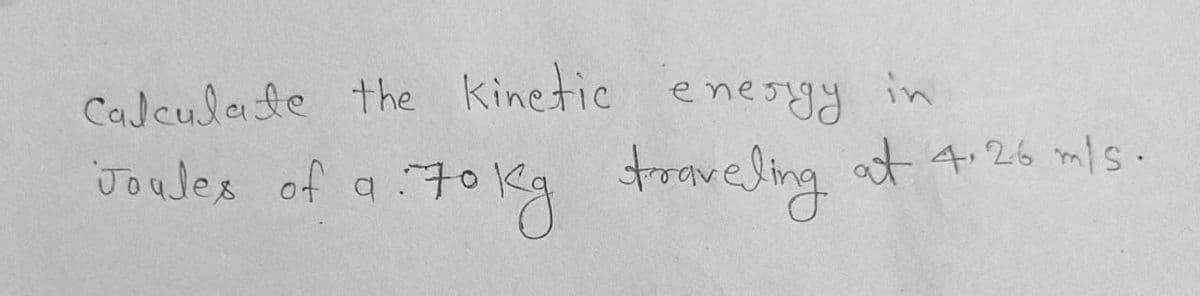 Calculate the kinetic energy in
Joules of a :70 kg traveling at 4.26 m/s.